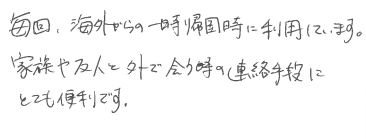 毎回、海外からの一時帰国時に利用しています。
家族や友人と外で会う時の連絡手段に
とても便利です。